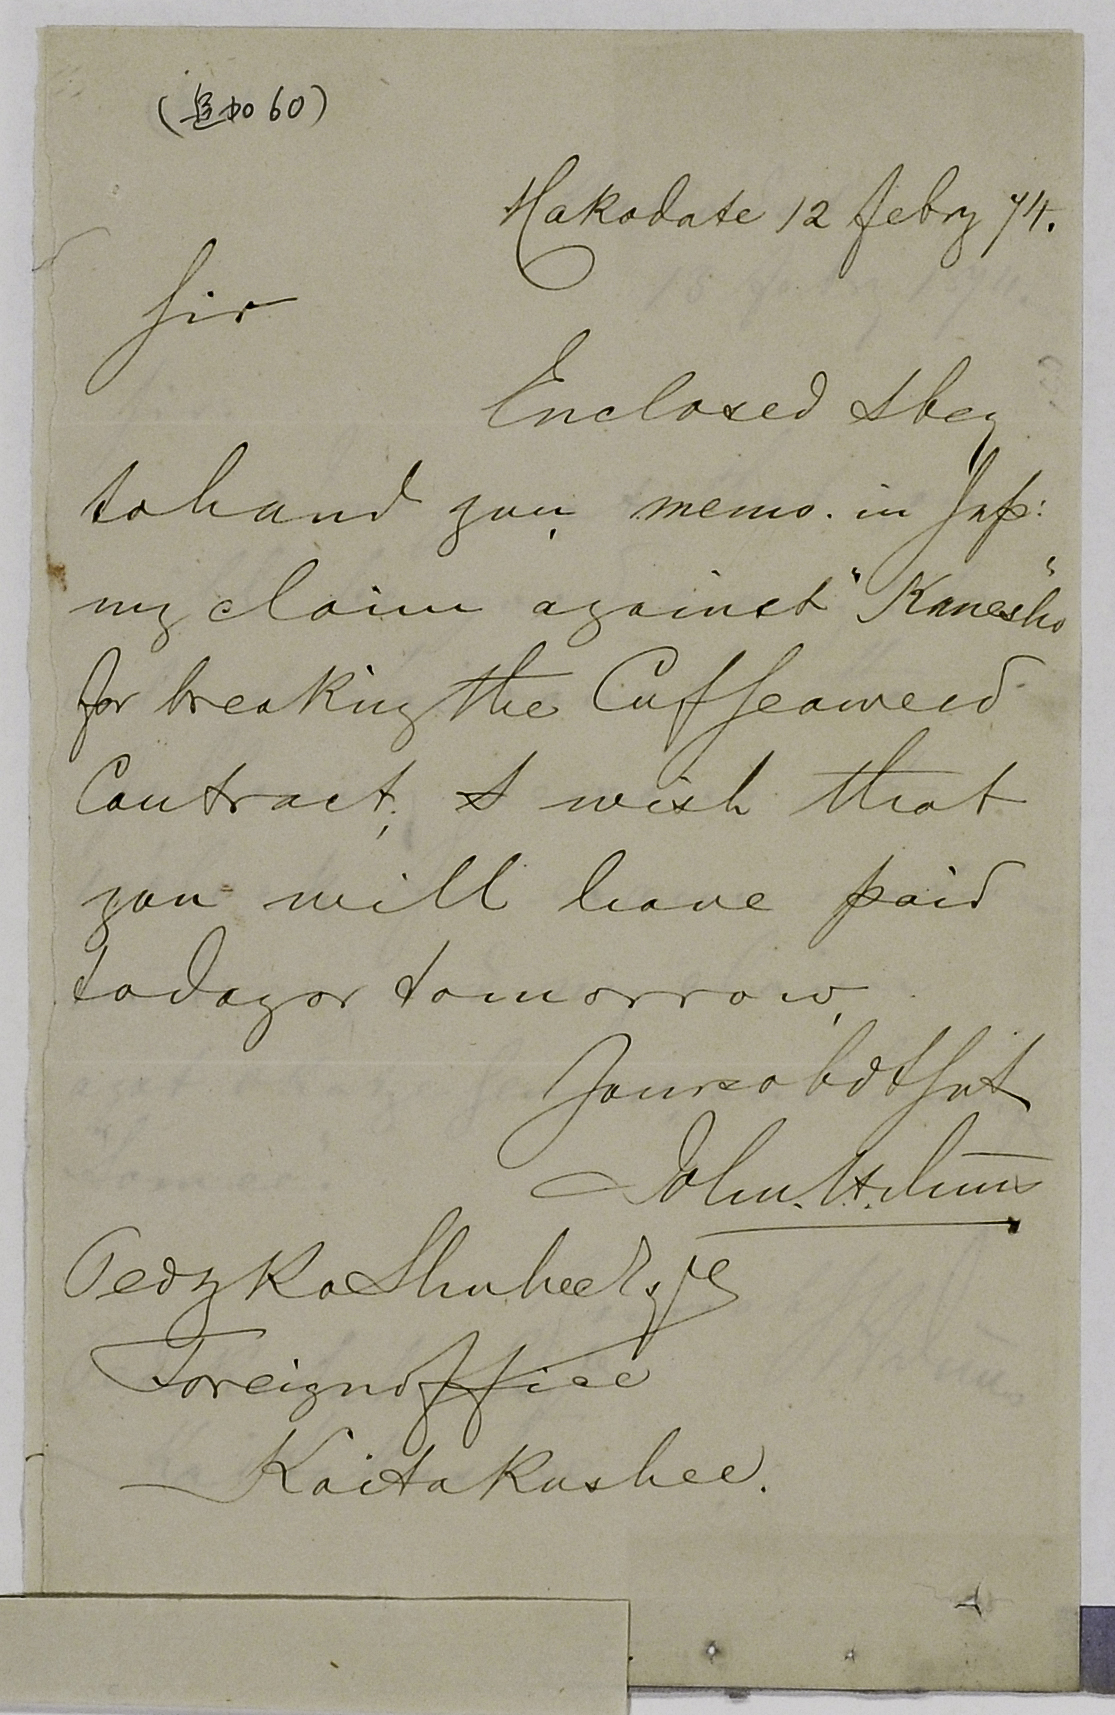 (追加60)
Hakodate 12 Febry 74.
Sir
Enclosed I beg
to hand you memo. in Jap:
my claim against "Kanesho"
for breaking the Cut Seaweed
Contract, I wish that
you will have paid
today or tomorrow,
Yours obdt Svt
John. H.
Shubee Esqre
Foreign Office
Kaitakushee.